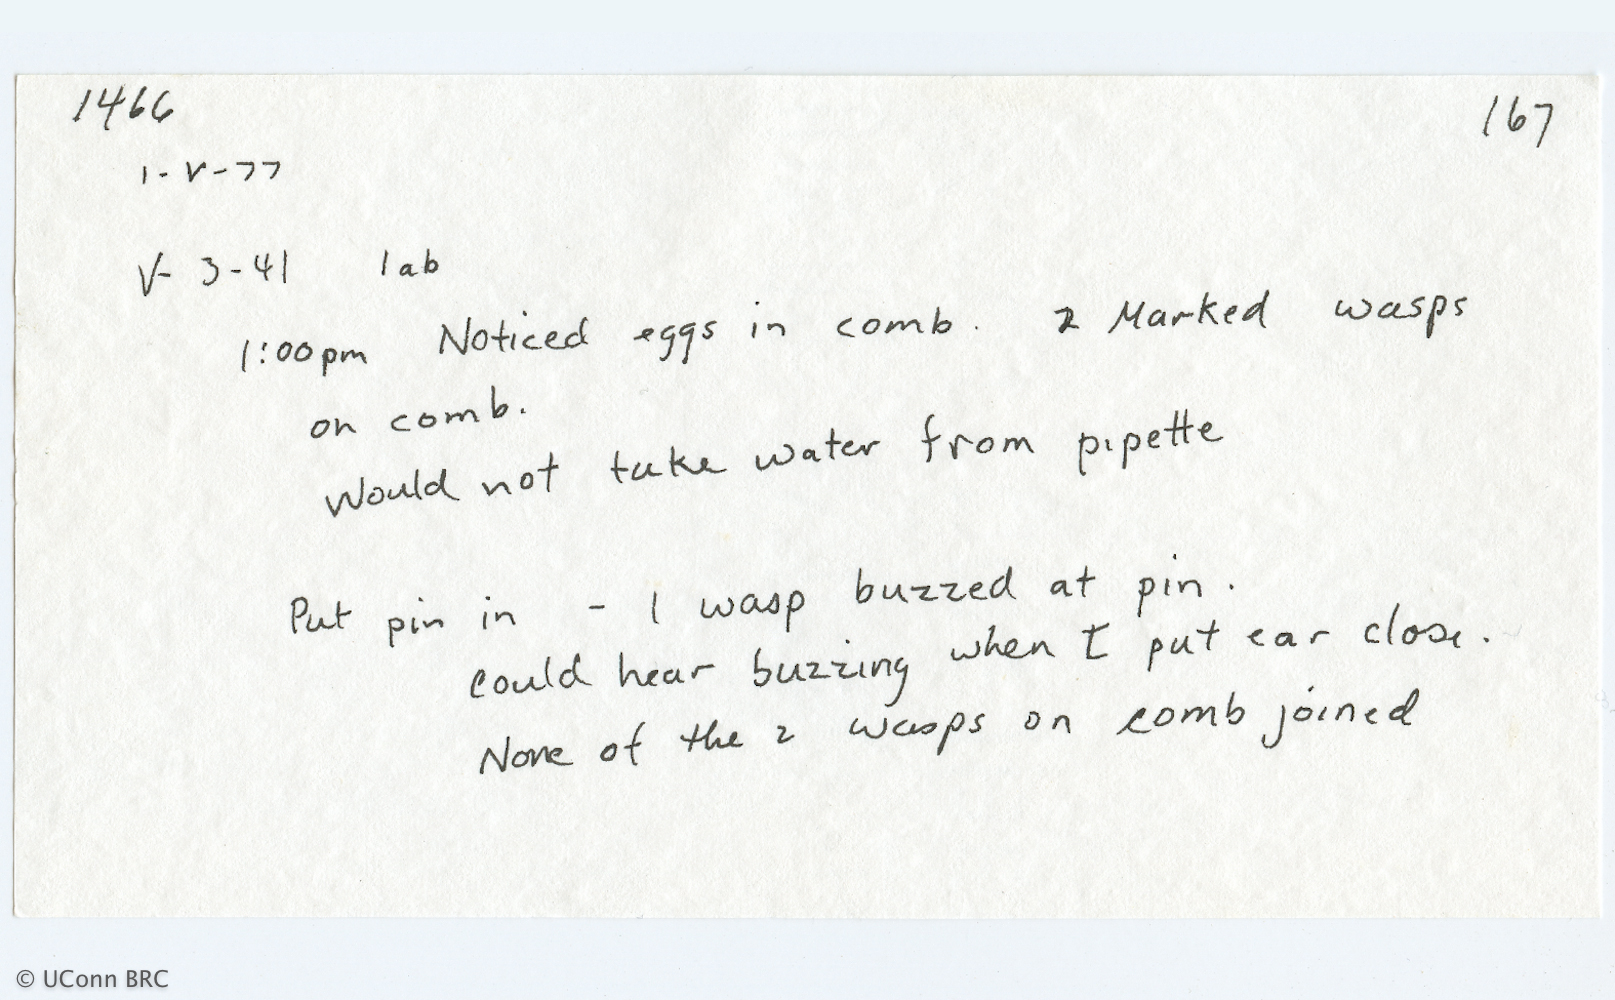 1466 167
1-V-77
V-3-41 lab
1:00pm Noticed eggs in comb. 2 Marked wasps
on comb.
Would not take water from pipette
Put pin in - 1 wasp buzzed at pin.
could hear buzzing when I put ear close.
None of the 2 wasps on comb joined
© UConn BRC